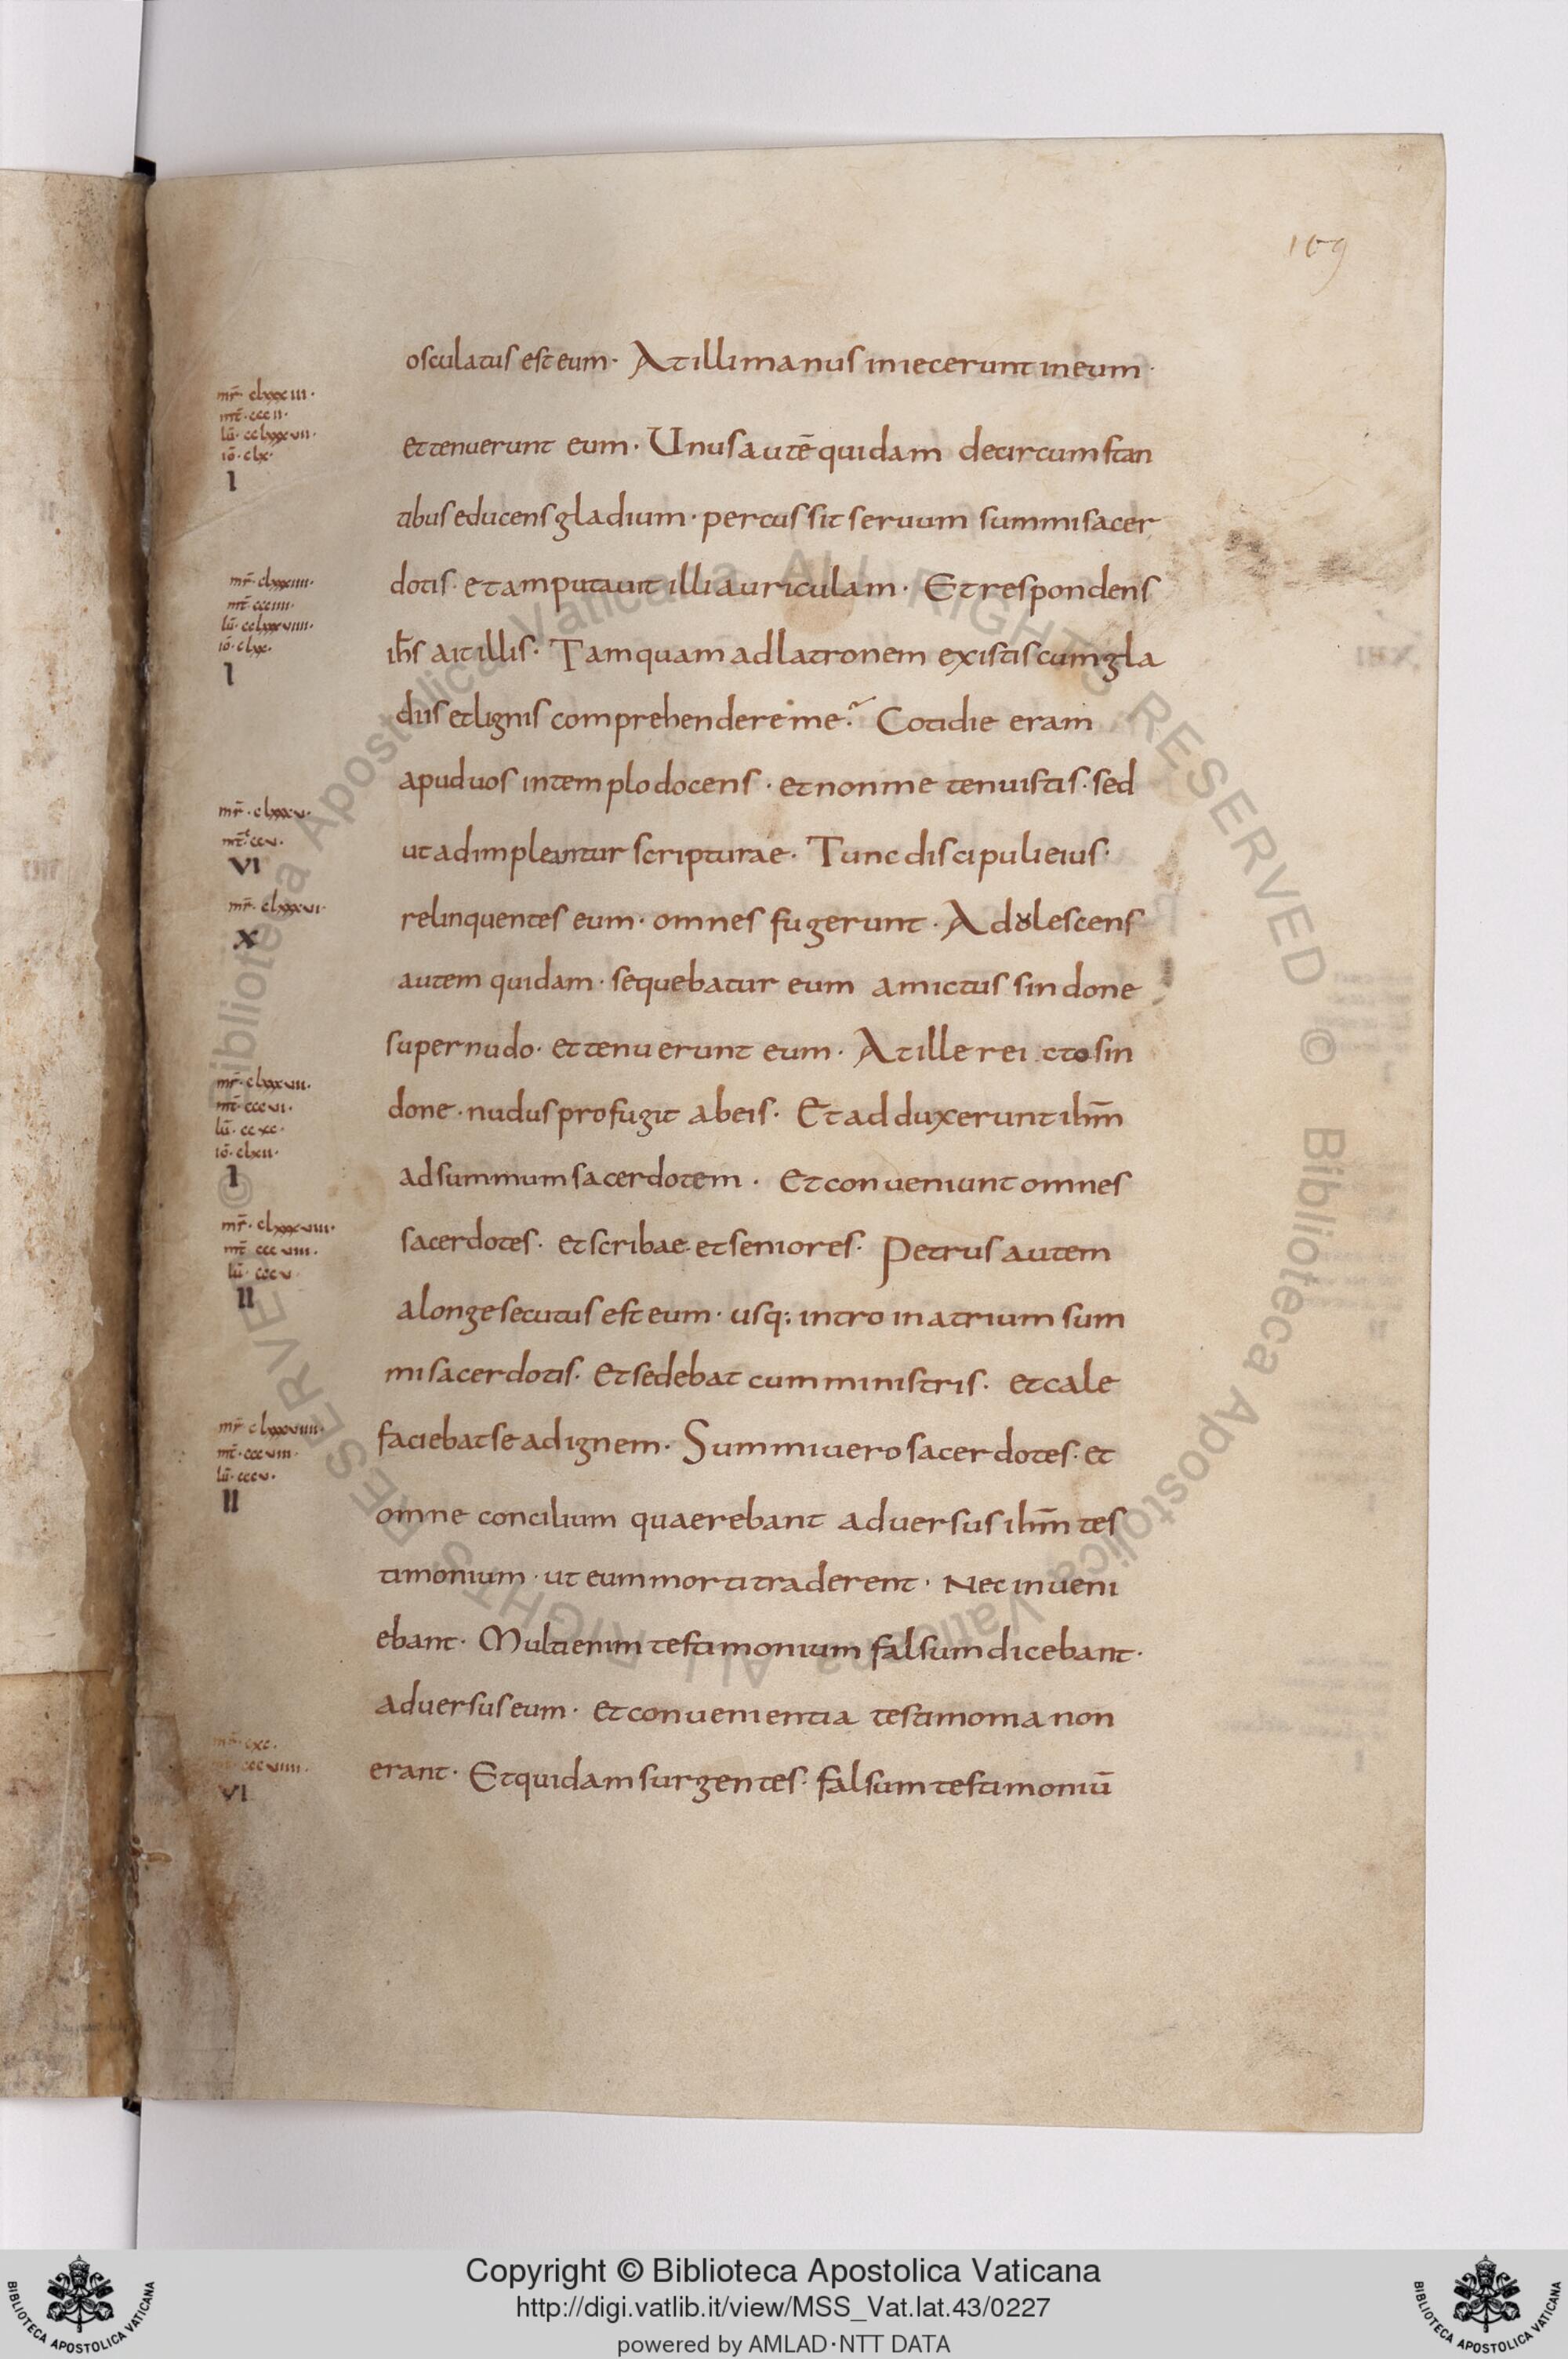 109
osculatus est eum· At illi manus iniecerunt in eum·
mr̄· clxxxiii·
mt̄· cccii·
lū· cclxxxvii·
iō· clx·
I
et tenuerunt eum· Unus autē quidam de circumstan
tibus educens gladium· percussit seruum summi sacer
mr̄· clxxxiiii·
mt̄· ccciiii·
lū· cclxxxviiii·
iō· clxx·
I
dotis· et amputauit illi auriculam· Et respondens
ih̄s ait illis· Tamquam ad latronem existis cum gla
diis et lignis comprehendere me? Cotidie eram
apud uos in templo docens· et non me tenuistis· sed
mr̄· clxxxv·
VI
ut adimpleantur scripturae· Tunc discipuli eius·
mr̄· clxxxvi·
X
relinquentes eum· omnes fugerunt· Adolescens
autem quidam· sequebatur eum amictus sindone
super nudo· et tenuerunt eum· At ille rei cto sin
mr̄· clxxxvii·
mt̄· cccvi·
lū· ccxc·
iō· clxii·
I
done· nudus profugit ab eis· Et adduxerunt ih̄m
ad summum sacerdotem· Et conueniunt omnes
mr̄· clxxxviii·
mt̄· cccviii·
lū· cccv·
II
sacerdotes· et scribae· et seniores· Petrus autem
a longe secutus est eum· usq; intro in atrium sum
mi sacerdotis· Et sedebat cum ministris· et cale
mr̄· clxxxviiii·
mt̄· cccviii·
lū· cccv·
II
faciebat se ad ignem· Summi uero sacerdotes· et
omne concilium quaerebant aduersus ih̄m tes
timonium· ut eum morti traderent· Nec inueni
ebant· Multi enim testimonium falsum dicebant·
aduersus eum· et conuenientia testimonia non
mr̄· cxc·
mt̄· cccviiii·
VI
erant· Et quidam surgentes· falsum testimoniū
© Biblioteca Apostolica Vaticana ALL RIGHTS RESERVED © Biblioteca Apostolica Vaticana ALL RIGHTS RESERVED
BIBLIOTECA APOSTOLICA VATICANA
Copyright © Biblioteca Apostolica Vaticana
http://digi.vatlib.it/view/MSS_Vat.lat.43/0227
powered by AMLAD·NTT DATA
BIBLIOTECA APOSTOLICA VATICANA